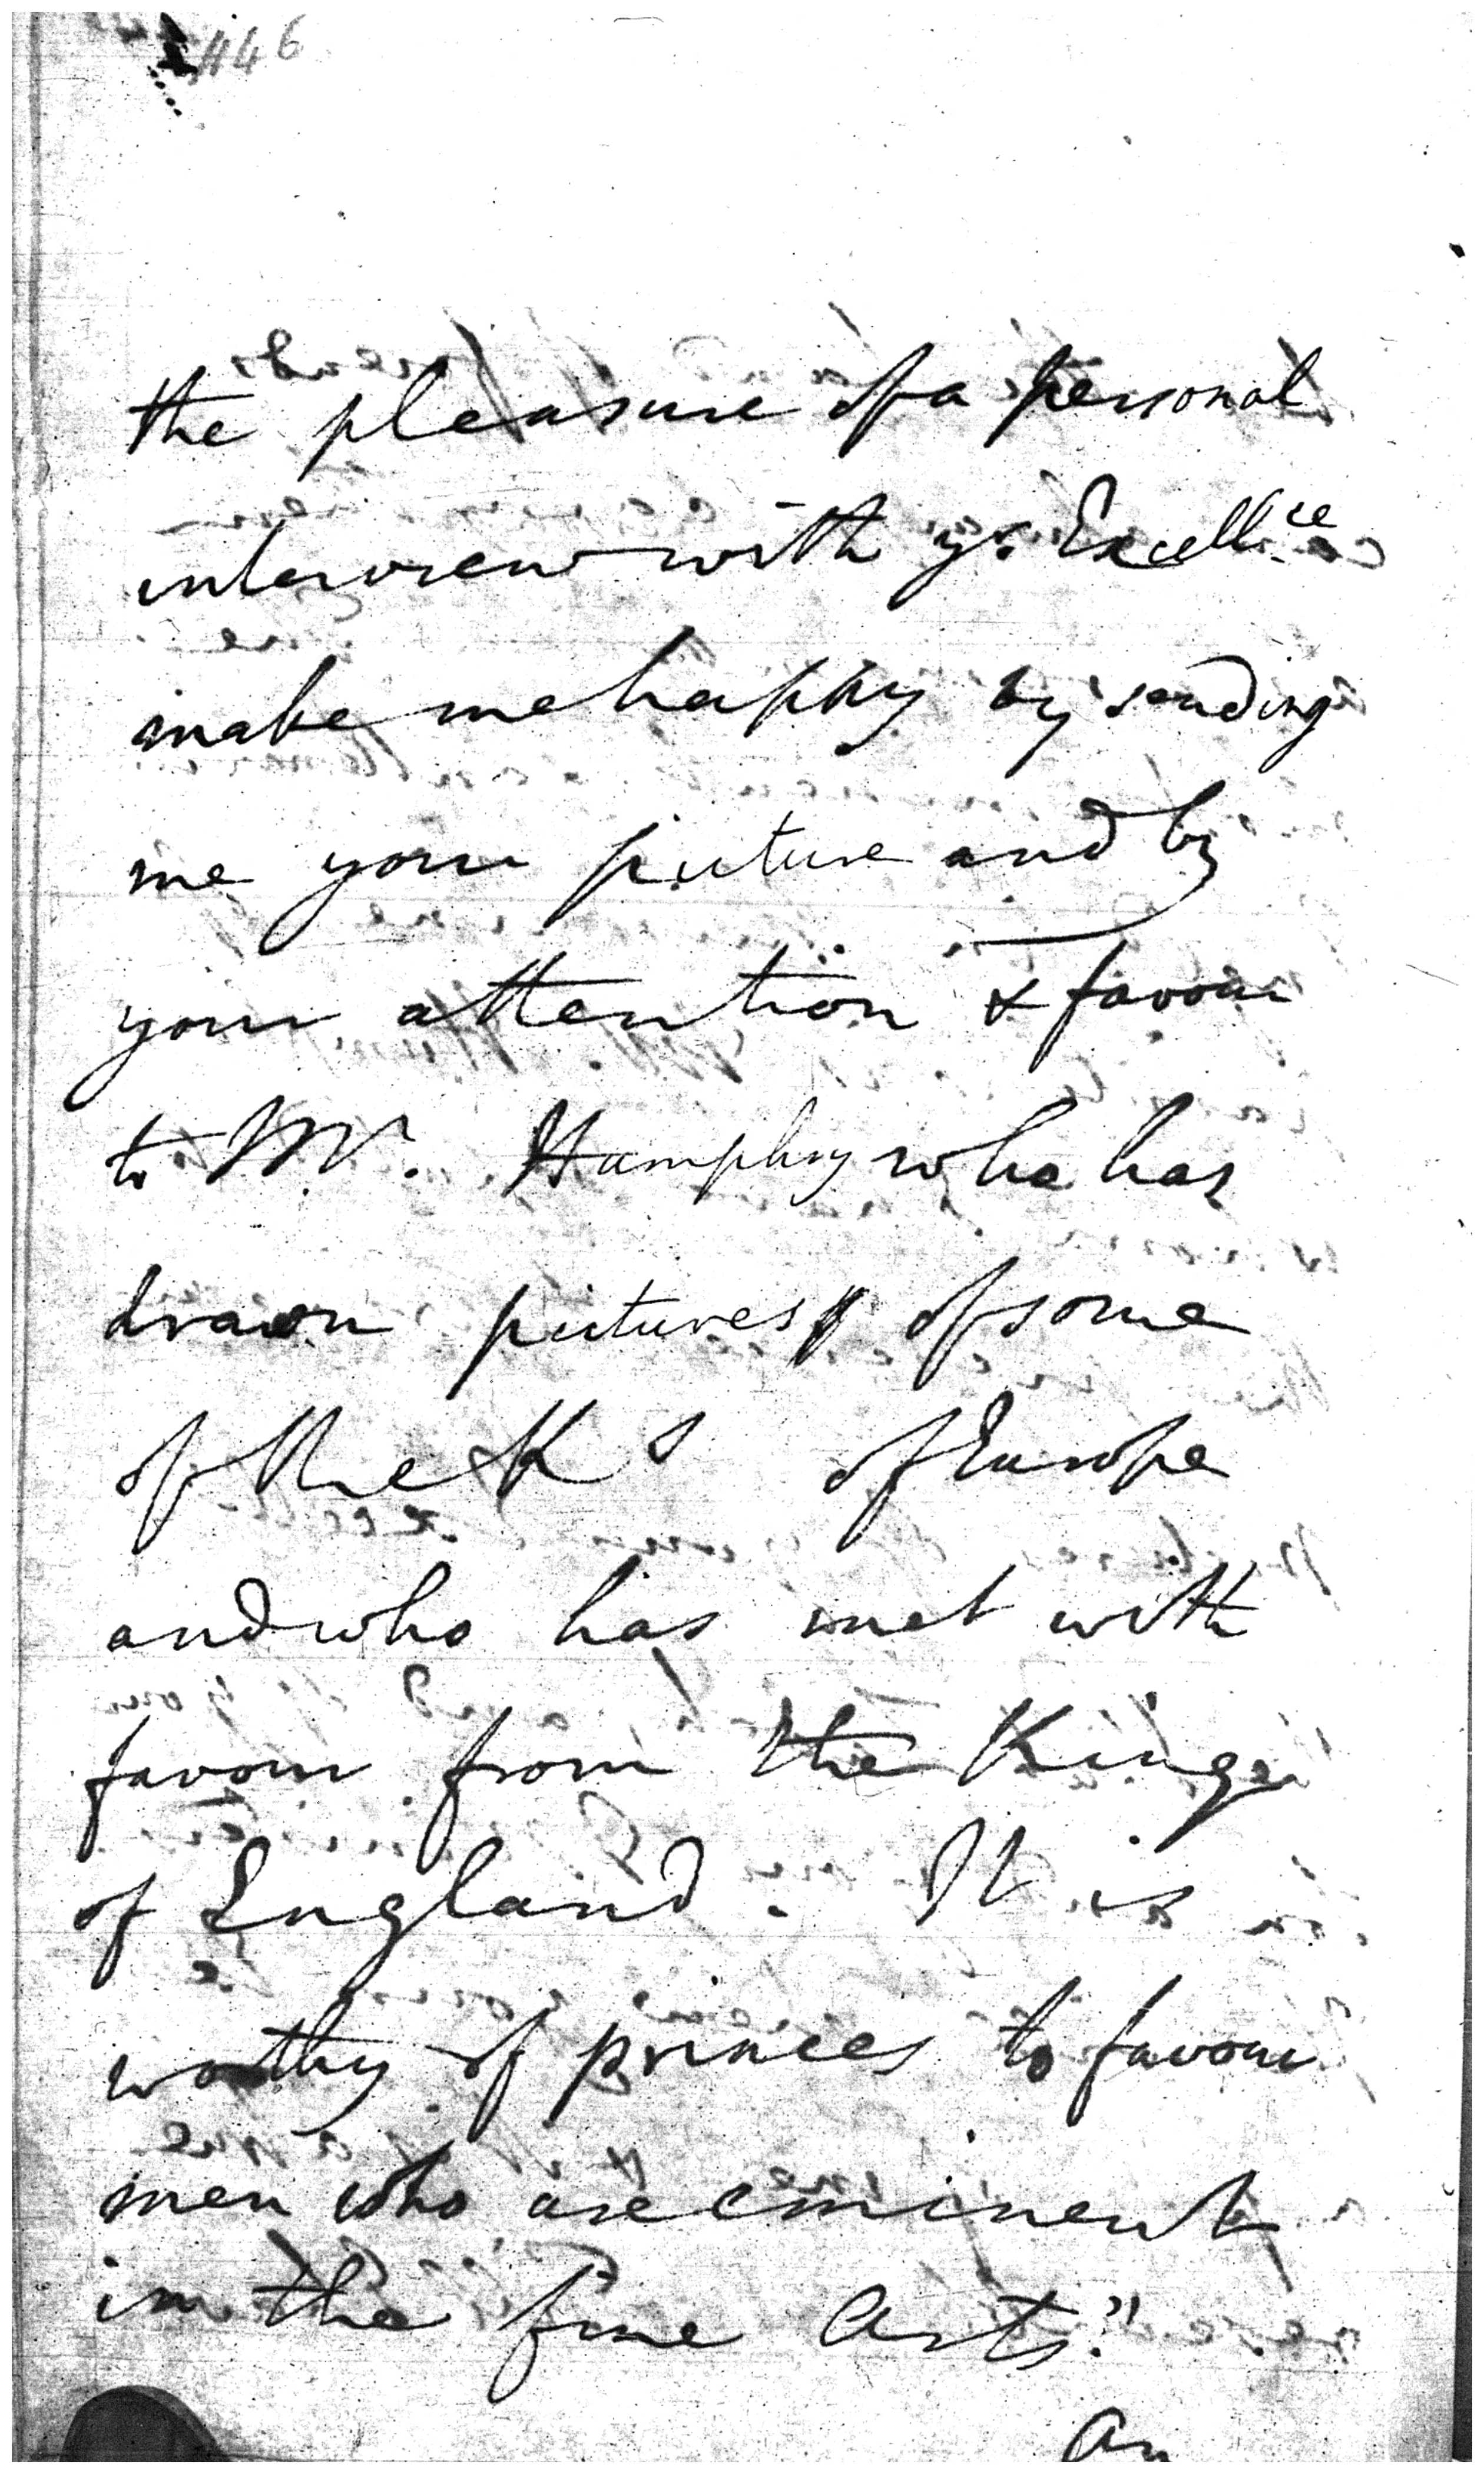 446
the pleasure of a personal
interview with yr. Excellce
make me happy by sending
me your picture and by
your attention & favour
to Mr. Humphry who has
drawn pictures of some
of the Ks of Europe
and who has met with
favour from the King
of England. It is
worthy of princes to favour
men who are eminent
in the fine Arts."
An